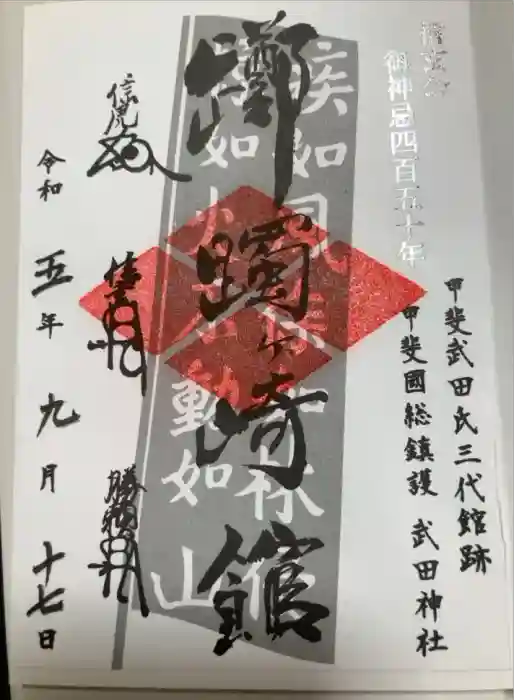 信玄公
御神忌四百五十年
甲斐武田氏三代館跡
甲斐國総鎮護 武田神社
疾如風徐如林侵
掠如火不動如山
躑躅ヶ崎館
信虎
信玄
勝頼
令和五年九月十七日